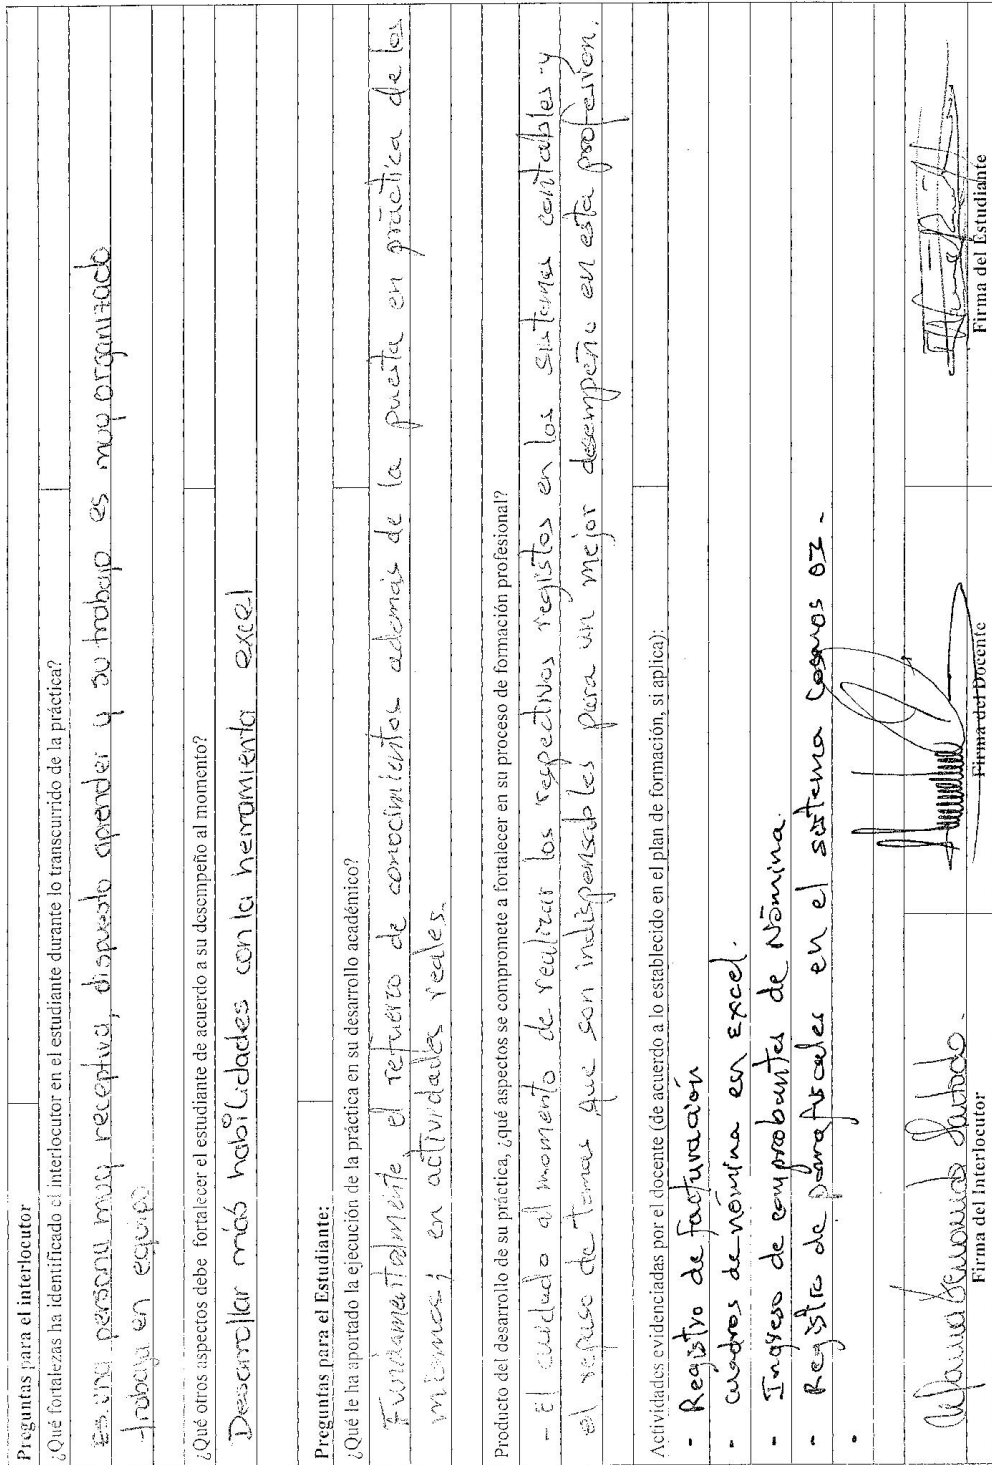 Preguntas para el interlocutor
¿Qué fortalezas ha identificado el interlocutor en el estudiante durante lo transcurrido de la práctica?
Es una persona muy receptiva, dispuesto aprender y su trabajo es muy organizado
trabaja en equipo
¿Qué otros aspectos debe fortalecer el estudiante de acuerdo a su desempeño al momento?
Desarrollar más habilidades con la herramienta excel
Preguntas para el Estudiante:
¿Qué le ha aportado la ejecución de la práctica en su desarrollo académico?
Fundamentalmente el refuerzo de conocimientos además de la puesta en práctica de los
mismos; en actividades reales.
Producto del desarrollo de su práctica, ¿qué aspectos se compromete a fortalecer en su proceso de formación profesional?
- El cuidado al momento de realizar los respectivos registos en los sistemas contables y
el repaso de temas que son indispensables para un mejor desempeño en esta profesion.
Actividades evidenciadas por el docente (de acuerdo a lo establecido en el plan de formación, si aplica):
- Registro de facturación
- cuadros de nómina en excel.
- Ingreso de comprobantes de Nómina.
- Registro de parafiscales en el sistema
Firma del Interlocutor
Firma del Docente
Firma del Estudiante